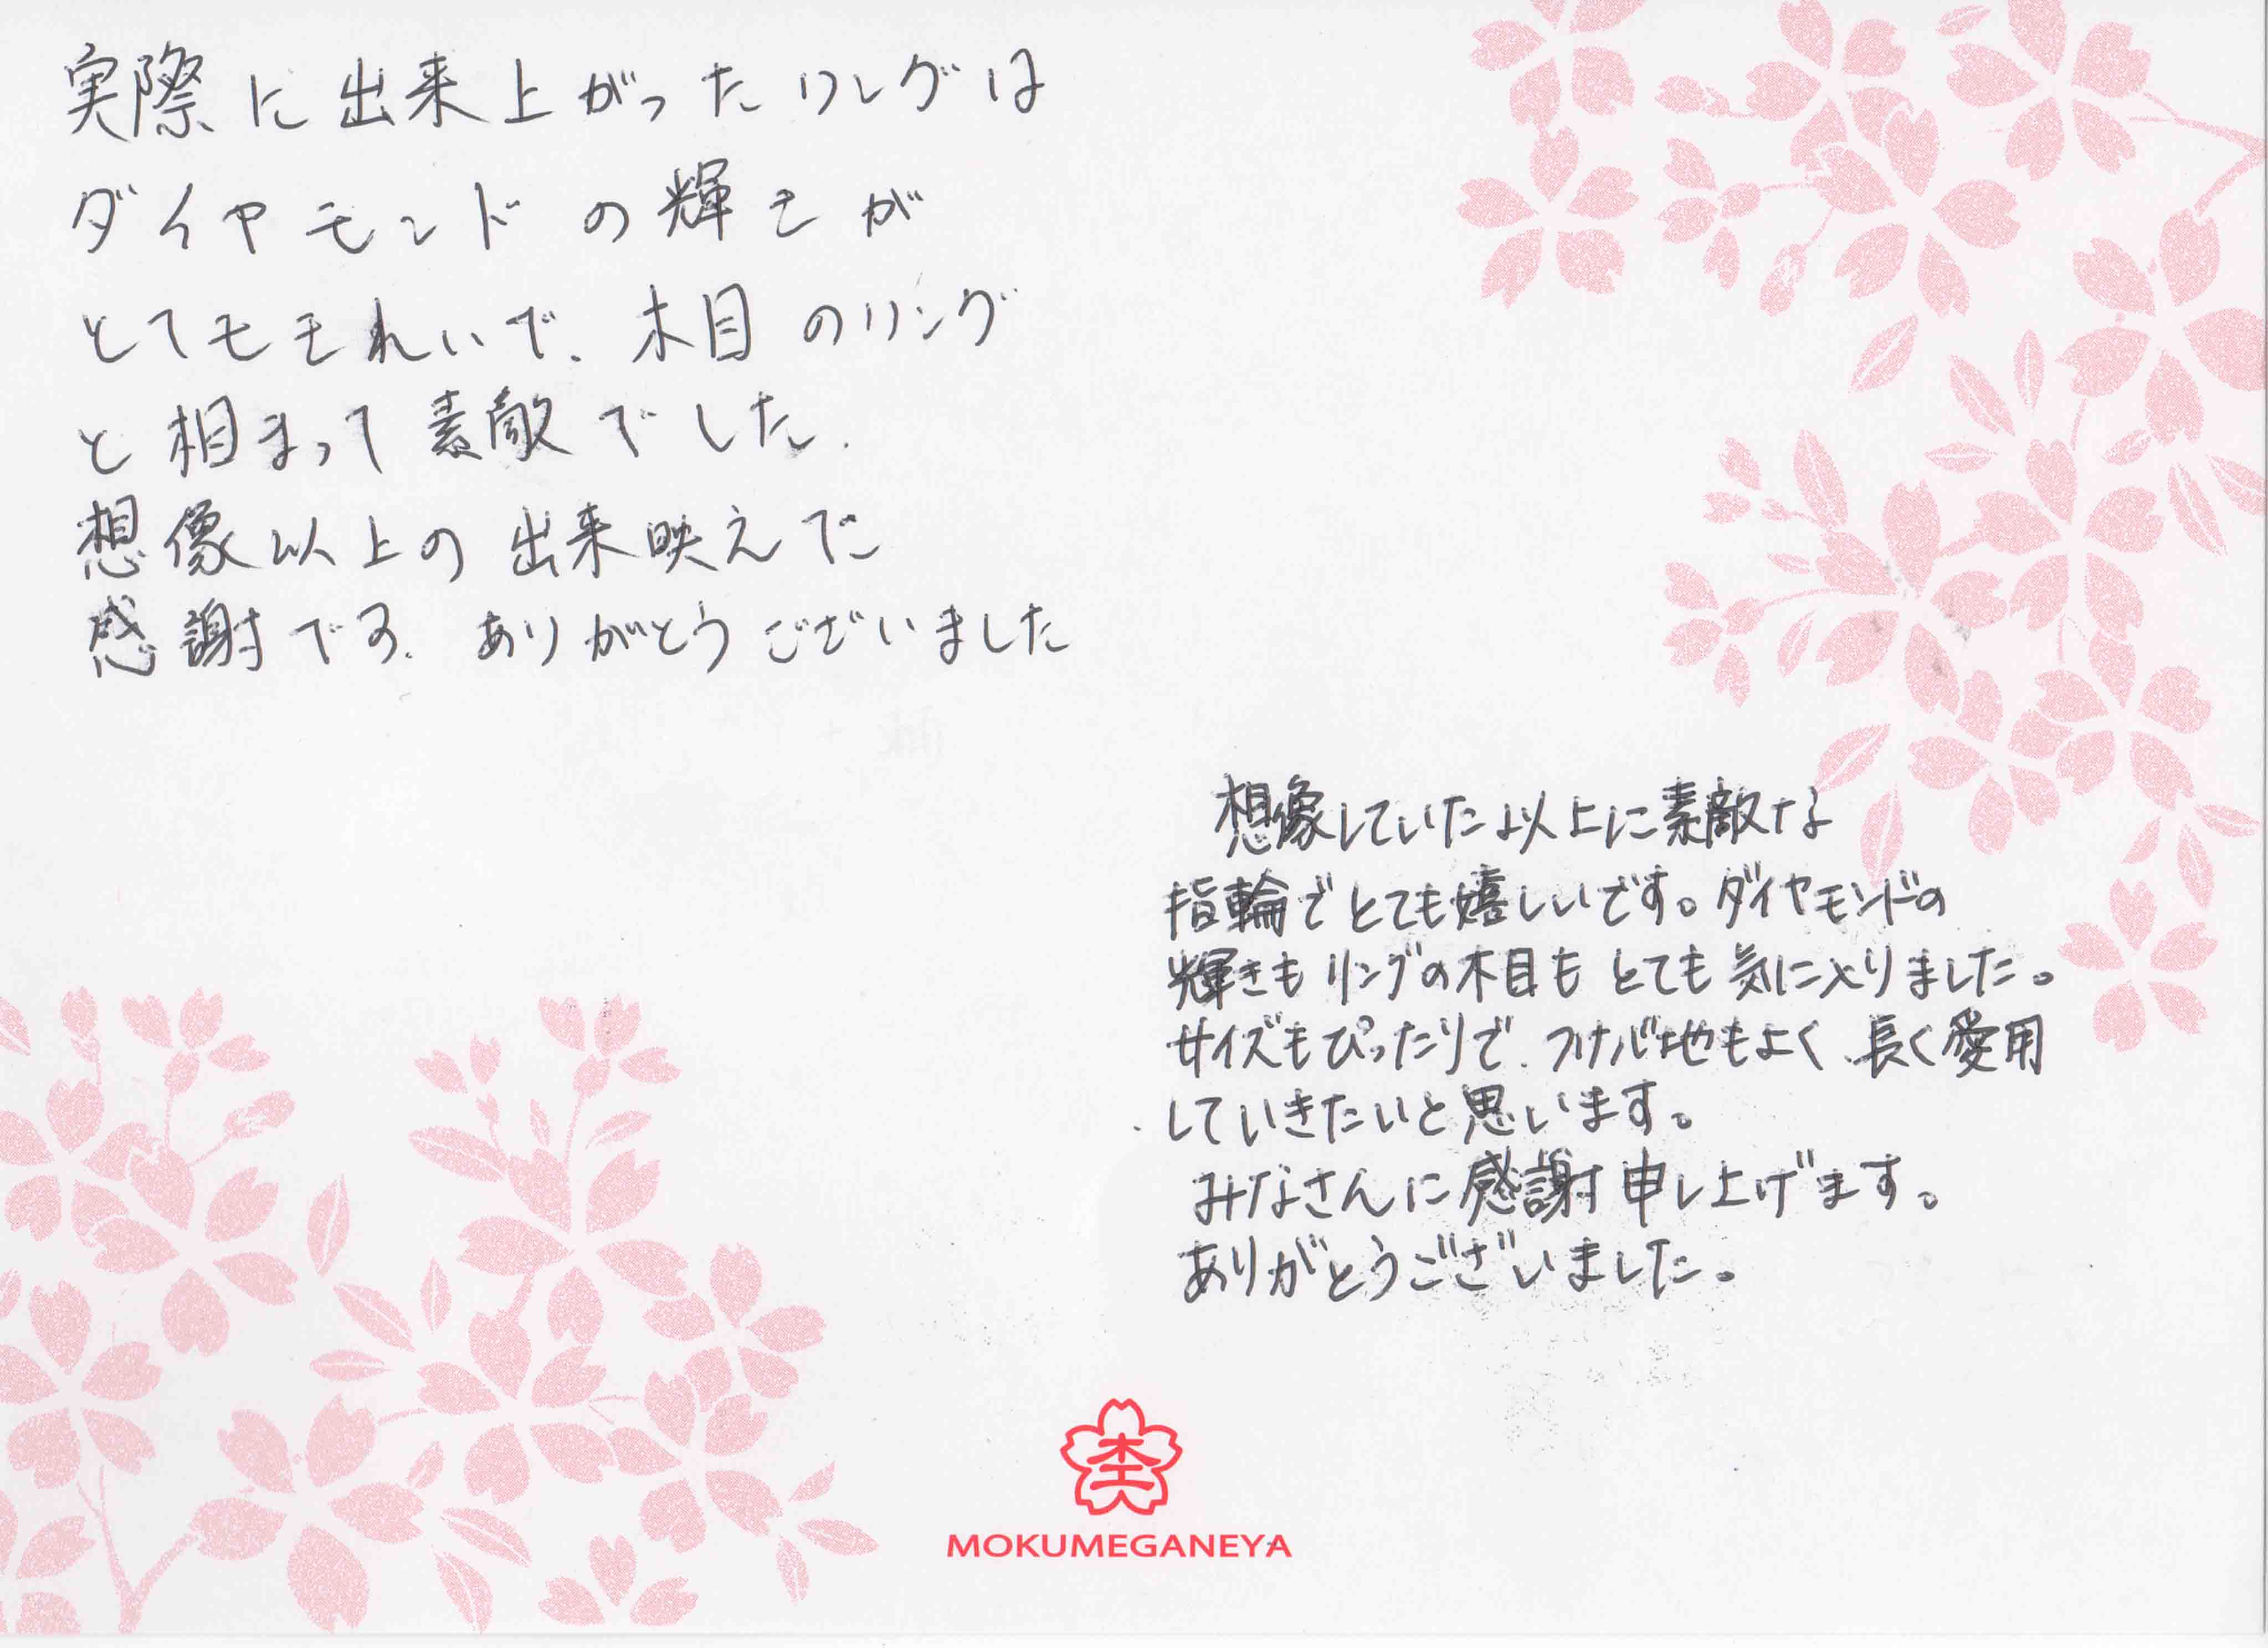 実際に出来上がったリングは
ダイヤモンドの輝きが
とてもきれいで、木目のリング
と相まって素敵でした.
想像以上の出来映えで
感謝です. ありがとうございました
想像していた以上に素敵な
指輪でとても嬉しいです。ダイヤモンドの
輝きもリングの木目もとても気に入りました。
サイズもぴったりで、つけ心地もよく、長く愛用
していきたいと思います。
みなさんに感謝申し上げます。
ありがとうございました。
杢
MOKUMEGANEYA